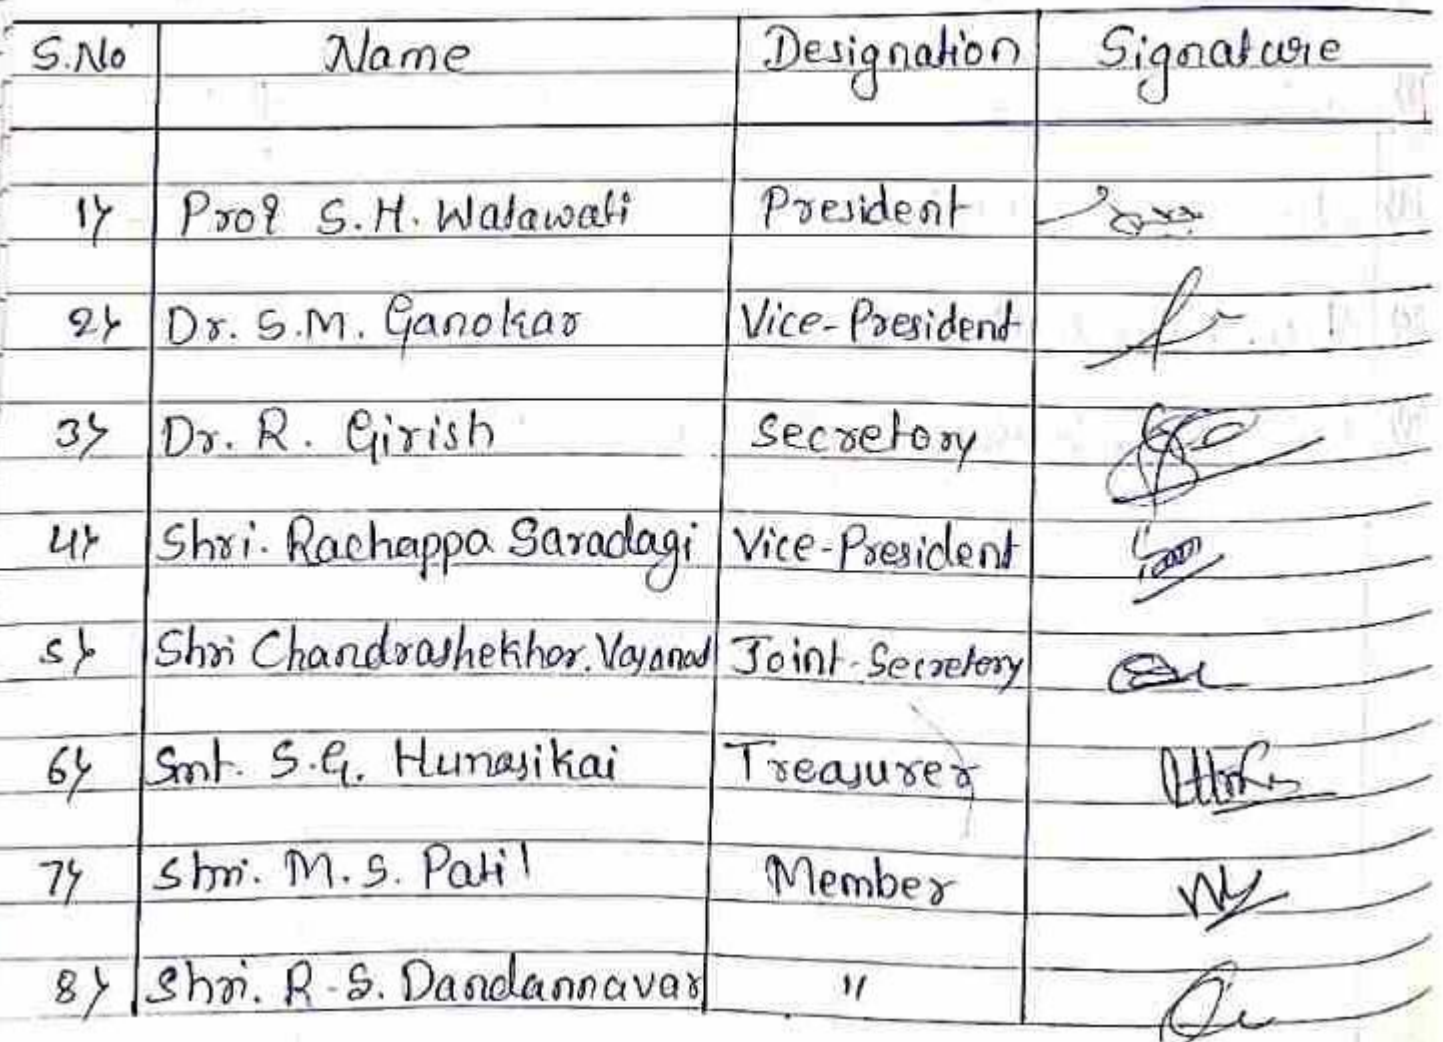 S.No Name Designation Signature
1) Prof S.H. Watawati President
2) Dr. S.M. Ganokar Vice-President
3) Dr. R. Girish Secretory
4) Shri. Rachappa Saradagi Vice-President
5) Shri Chandrashekhar. Joint-Secretory
6) Smt. S.G. Hunasikai Treasurer
7) Shri. M.S. Patil Member
8) Shri. R.S. Dandannavar "